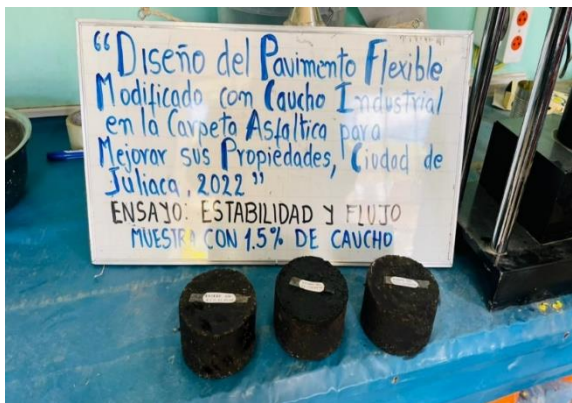 “Diseño del Pavimento Flexible
Modificado con Caucho Industrial
en la Carpeta Asfaltica para
Mejorar sus Propiedades, Ciudad de
Juliaca, 2022”
ENSAYO: ESTABILIDAD Y FLUJO
MUESTRA CON 1.5% DE CAUCHO